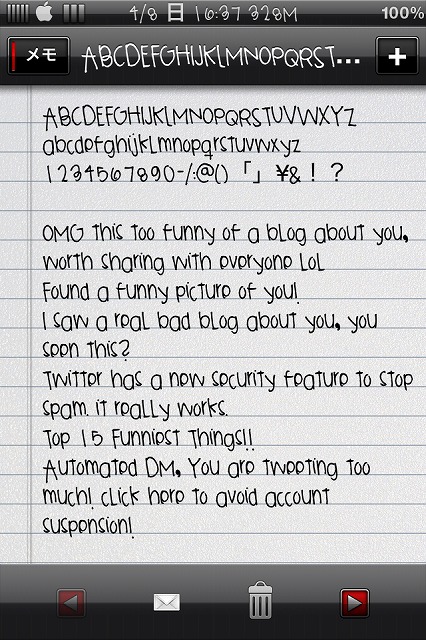 4/8 日 16:37 328M 100%
メモ ABCDEFGHIJKLMNOPQRST... +
ABCDEFGHIJKLMNOPQRSTUVWXYZ
abcdefghijklmnopqrstuvwxyz
1234567890-/:@()「」¥&！？
OMG this too funny of a blog about you,
worth sharing with everyone LoL
Found a funny picture of you!
I saw a real bad blog about you, you
seen this?
Twitter has a new security feature to stop
spam. it really works.
Top 15 Funniest Things!!
Automated DM, You are tweeting too
much! click here to avoid account
suspension!